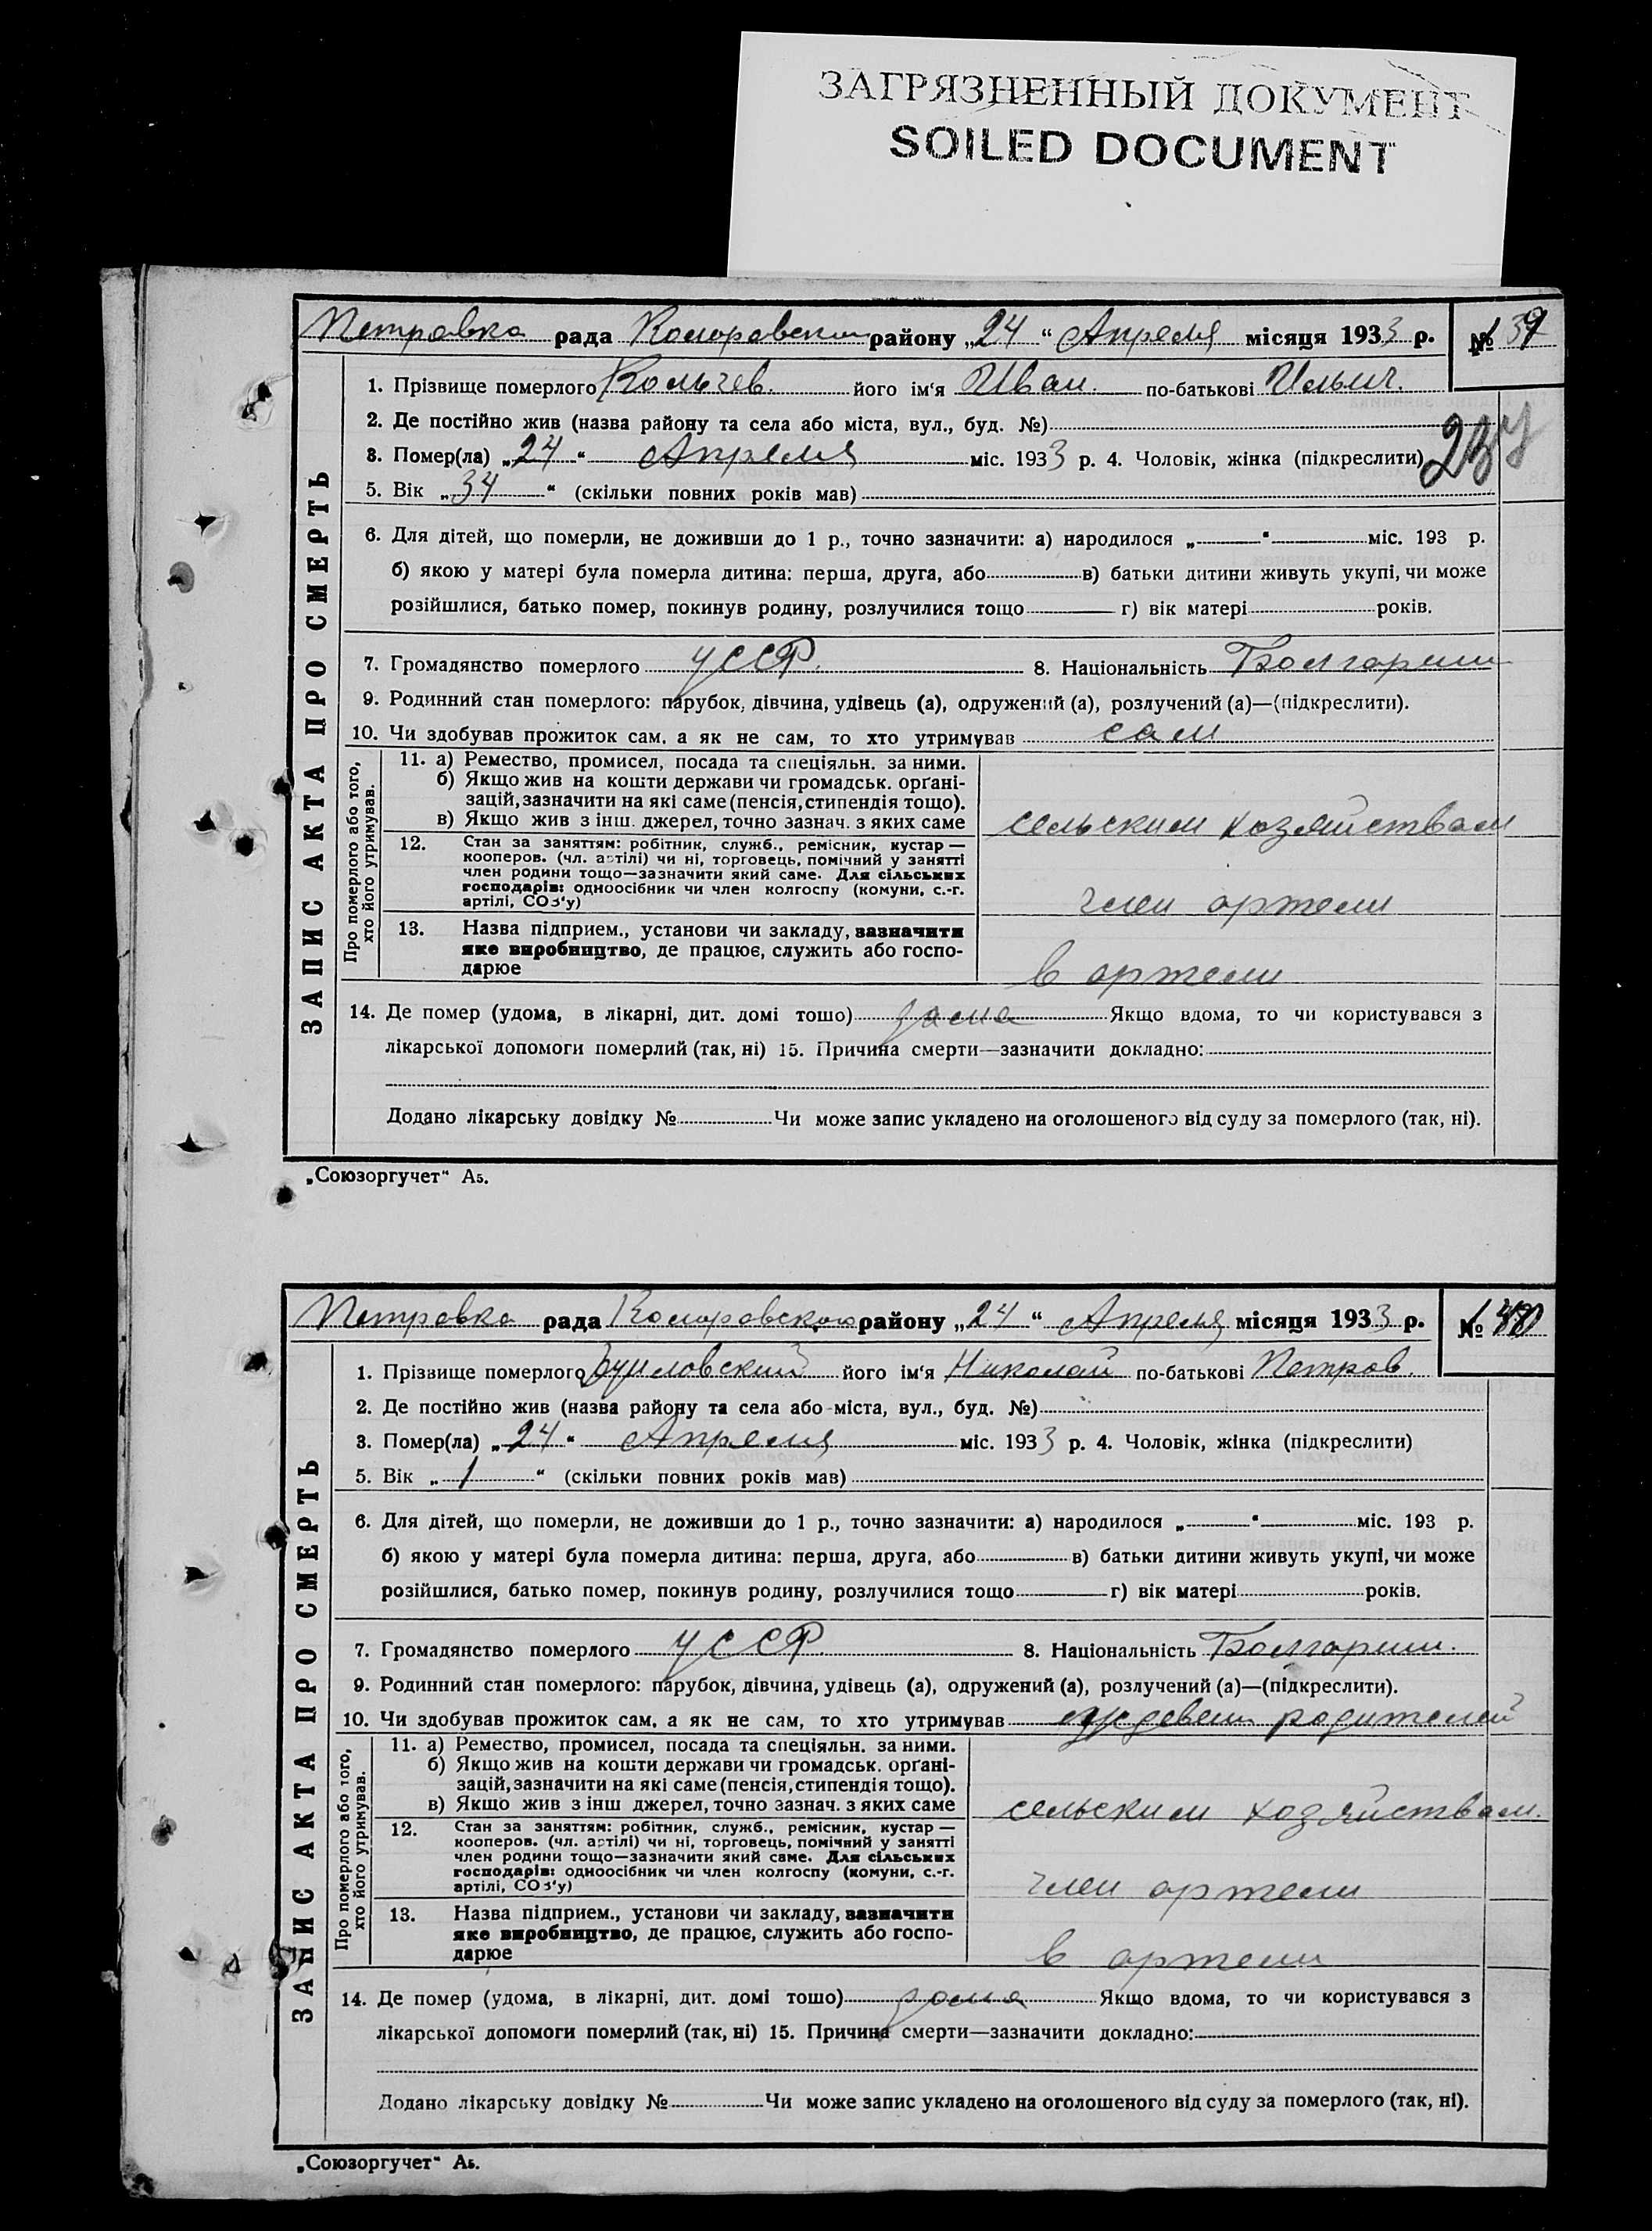 ЗАГРЯЗНЕННЫЙ ДОКУМЕНТ
SOILED DOCUMENT
Петровка рада району „24“ Апреля місяця 1933 р. № 39
1. Прізвище померлого його ім‘я Иван. по-батькові Ильич.
2. Де постійно жив (назва району та села або міста, вул., буд. №)
3. Помер(ла) „24“ Апреля міс. 1933 р. 4. Чоловік, жінка (підкреслити)
5. Вік „34“ (скільки повних років мав)
6. Для дітей, що померли, не доживши до 1 р., точно зазначити: а) народилося „ “ міс. 193 р.
б) якою у матері була померла дитина: перша, друга, або в) батьки дитини живуть укупі, чи може
розійшлися, батько помер, покинув родину, розлучилися тощо г) вік матері років.
7. Громадянство померлого УССР. 8. Національність Болгарин
9. Родинний стан померлого: парубок, дівчина, удівець (а), одружений (а), розлучений (а)—(підкреслити).
10. Чи здобував прожиток сам, а як не сам, то хто утримував сам
ЗАПИС АКТА ПРО СМЕРТЬ
Про померлого або того,
хто його утримував.
11. а) Ремество, промисел, посада та спеціяльн. за ними.
б) Якщо жив на кошти держави чи громадськ. орґані-
зацій, зазначити на які саме (пенсія, стипендія тощо).
в) Якщо жив з інш. джерел, точно зазнач. з яких саме
сельским хозяйствам
12. Стан за заняттям: робітник, служб., ремісник, кустар —
кооперов. (чл. артілі) чи ні, торговець, помічний у занятті
член родини тощо—зазначити який саме. Для сільських
господарів: одноосібник чи член колгоспу (комуни, с.-г.
артілі, СОЗ‘у)
член артели
13. Назва підприєм., установи чи закладу, зазначити
яке виробництво, де працює, служить або госпо-
дарює
в артели
14. Де помер (удома, в лікарні, дит. домі тошо) дома Якщо вдома, то чи користувався з
лікарської допомоги померлий (так, ні) 15. Причина смерти—зазначити докладно:
Додано лікарську довідку № Чи може запис укладено на оголошеного від суду за померлого (так, ні).
„Союзоргучет“ А5.
Петровка рада району „24“ Апреля місяця 1933 р. №
1. Прізвище померлого його ім‘я Николай по-батькові Петров.
2. Де постійно жив (назва району та села або міста, вул., буд. №)
3. Помер(ла) „24“ Апреля міс. 1933 р. 4. Чоловік, жінка (підкреслити)
5. Вік „1“ (скільки повних років мав)
6. Для дітей, що померли, не доживши до 1 р., точно зазначити: а) народилося „ “ міс. 193 р.
б) якою у матері була померла дитина: перша, друга, або в) батьки дитини живуть укупі, чи може
розійшлися, батько помер, покинув родину, розлучилися тощо г) вік матері років.
7. Громадянство померлого УССР. 8. Національність Болгарин.
9. Родинний стан померлого: парубок, дівчина, удівець (а), одружений (а), розлучений (а)—(підкреслити).
10. Чи здобував прожиток сам, а як не сам, то хто утримував родителей
ЗАПИС АКТА ПРО СМЕРТЬ
Про померлого або того,
хто його утримував.
11. а) Ремество, промисел, посада та спеціяльн. за ними.
б) Якщо жив на кошти держави чи громадськ. орґані-
зацій, зазначити на які саме (пенсія, стипендія тощо).
в) Якщо жив з інш джерел, точно зазнач. з яких саме
сельским хозяйствам.
12. Стан за заняттям: робітник, служб., ремісник, кустар —
кооперов. (чл. артілі) чи ні, торговець, помічний у занятті
член родини тощо—зазначити який саме. Для сільських
господарів: одноосібник чи член колгоспу (комуни, с.-г.
артілі, СОЗ‘у)
член артели
13. Назва підприєм., установи чи закладу, зазначити
яке виробництво, де працює, служить або госпо-
дарює
в артели
14. Де помер (удома, в лікарні, дит. домі тошо) дома Якщо вдома, то чи користувався з
лікарської допомоги померлий (так, ні) 15. Причина смерти—зазначити докладно:
Додано лікарську довідку № Чи може запис укладено на оголошеного від суду за померлого (так, ні).
„Союзоргучет“ А5.